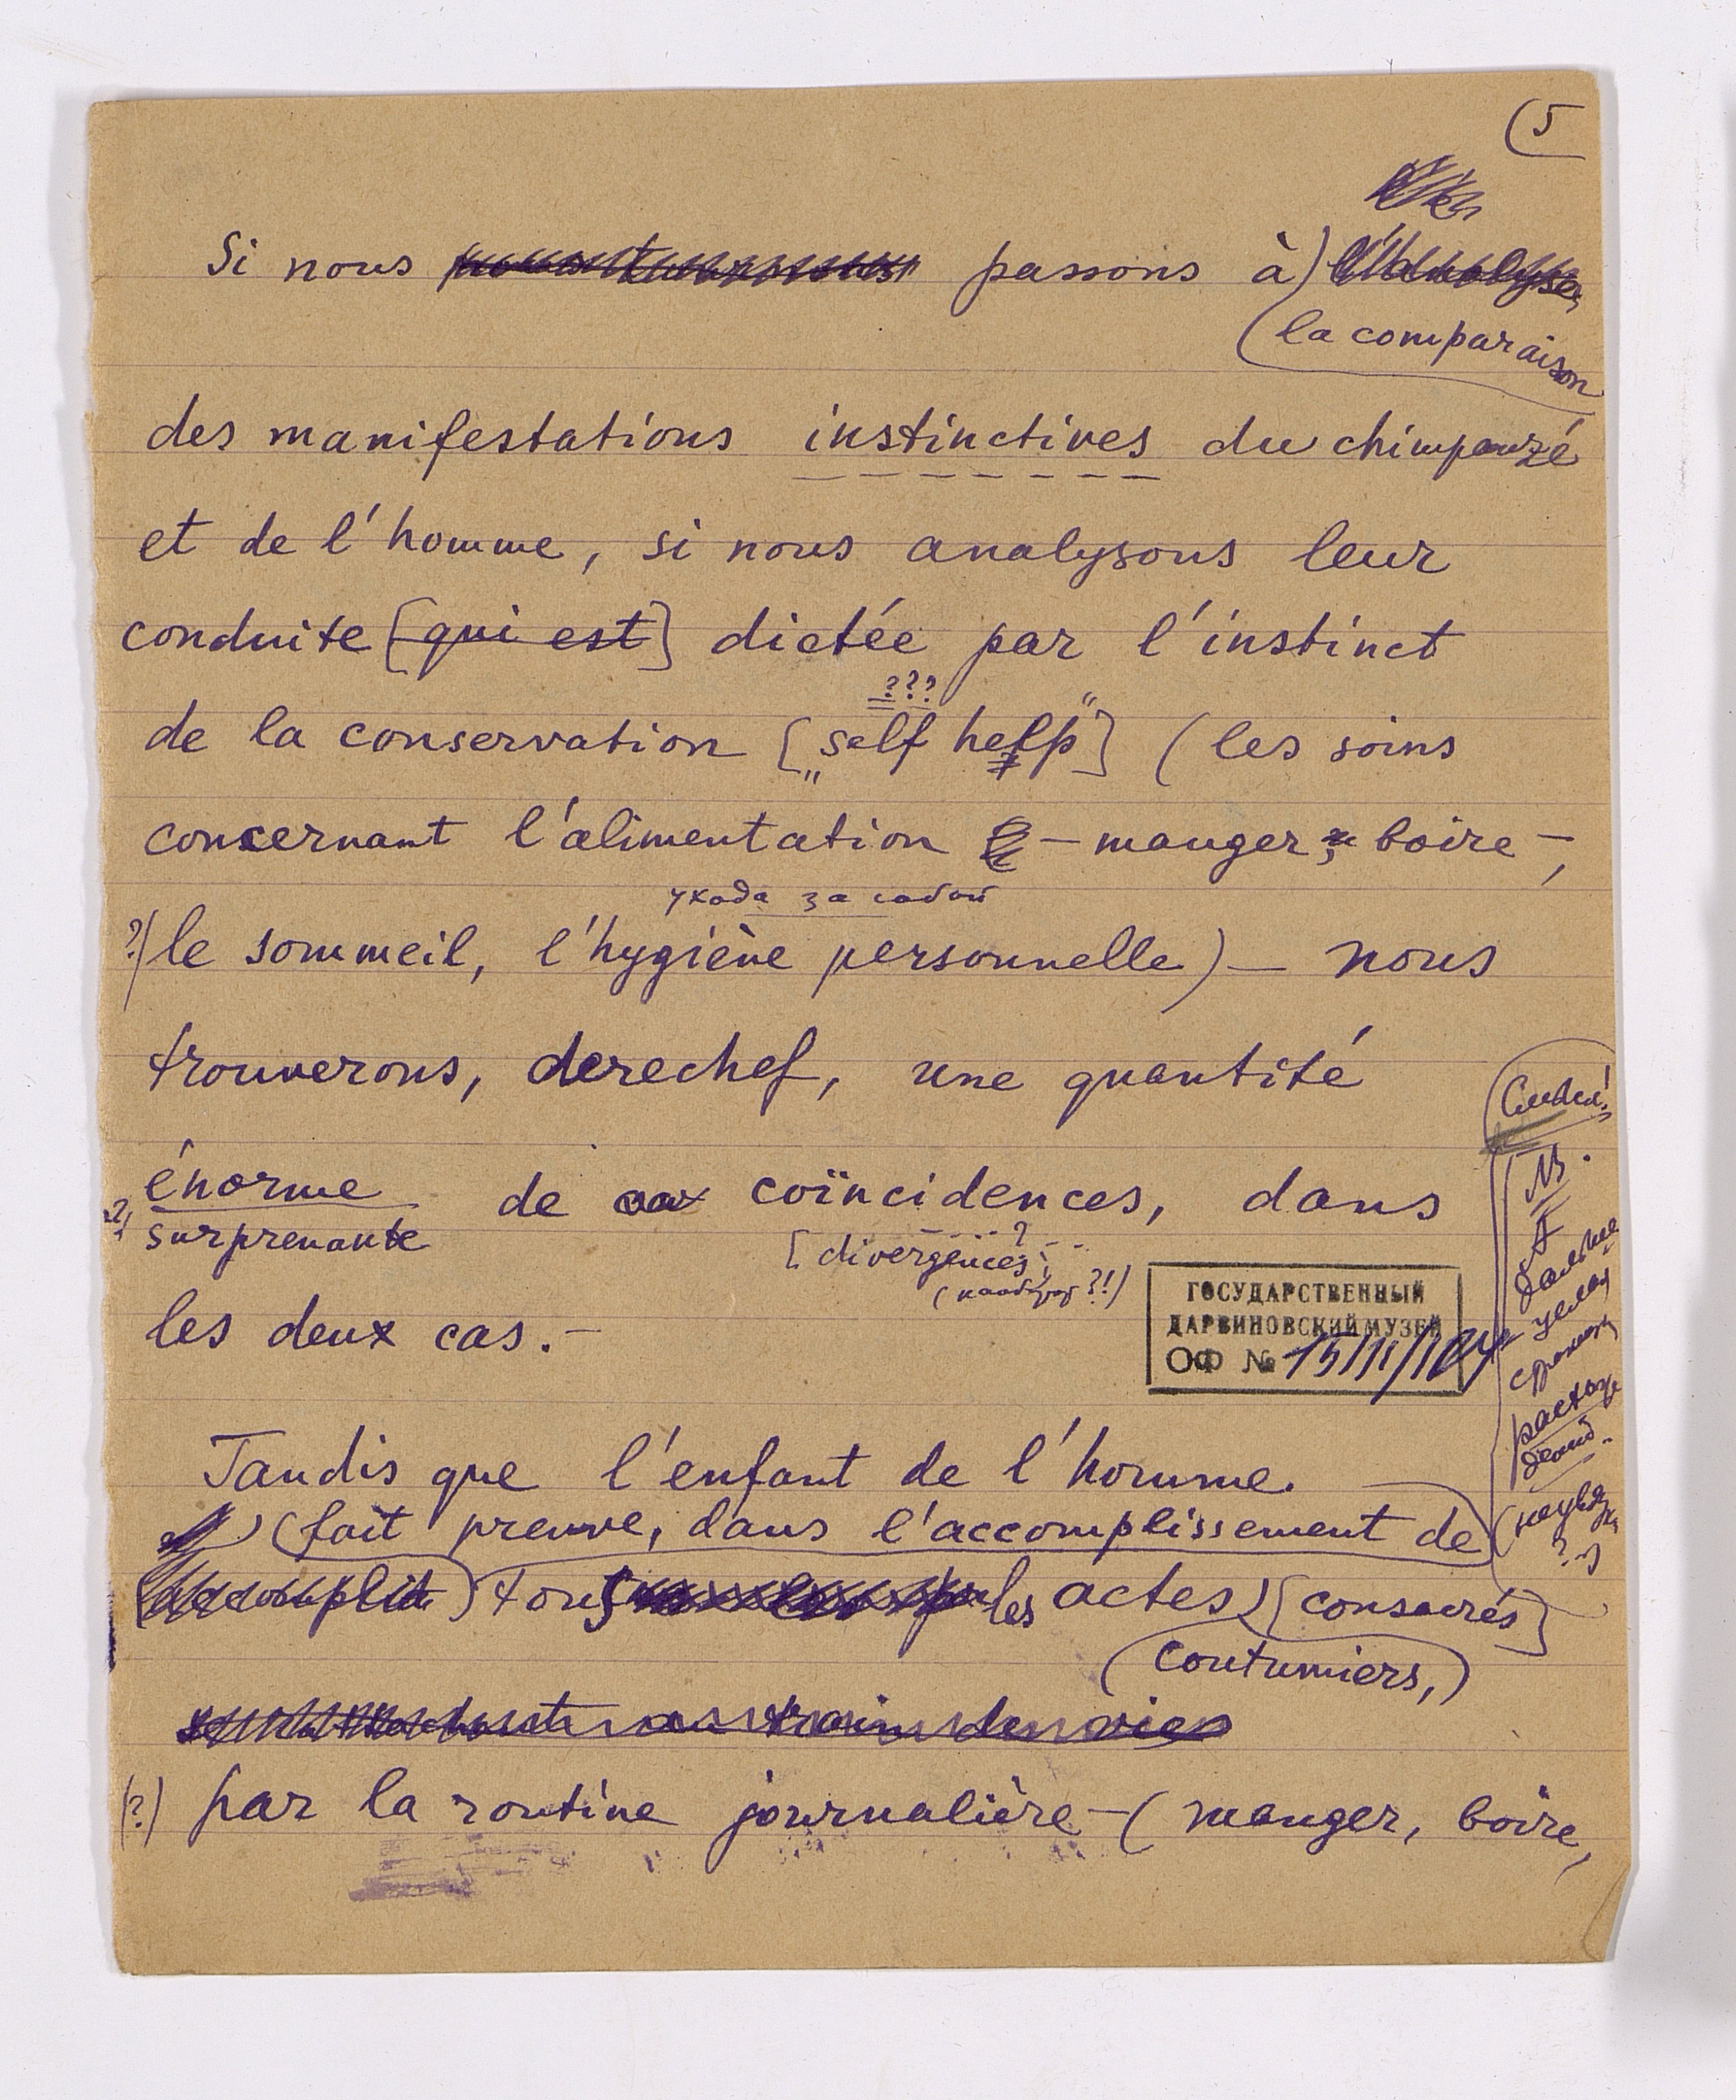 (5
Si nous passons à)
(la comparaison
des manifestations instinctives du chimpanzé
et de l'homme, si nous analysons leur
conduite [qui est] dictée par l'instinct
???
de la conservation [„self help"] (les soins
concernant l'alimentation — manger, boire —,
ухода за собой
?) le sommeil, l'hygiène personnelle) — nous
trouverons, derechef, une quantité
énorme de coïncidences, dans
surprenante
[divergences?
(наоборот?!)
les deux cas.—
ГОСУДАРСТВЕННЫЙ
ДАРВИНОВСКИЙ МУЗЕЙ
ОФ №
NB.
дальше
целая
Tandis que l'enfant de l'homme.
(fait preuve, dans l'accomplissement de
accomplit) tous les actes) [consacrés]
(coutumiers,)
(?) par la routine journalière — (manger, boire,